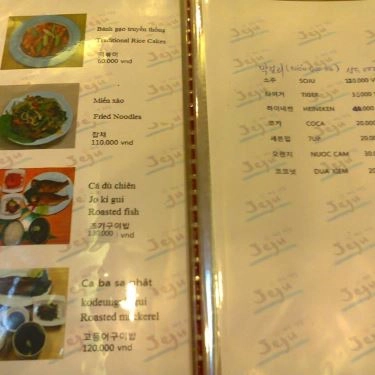 Bánh gạo truyền thống
Traditional Rice Cakes
떡볶이
60.000 vnd
Miến xào
Fried Noodles
잡채
110.000 vnd
Cá dù chiên
Jo ki gui
Roasted fish
조기구이밥
vnd
Ca ba sa nhật
kodeung gui
Roasted mackerel
고등어구이밥
120.000 vnd
막걸리
소주 SOJU 120.000 V
타이거 TIGER
하이네켄 HEINEKEN
코카 COCA 20.00
세븐업 7UP 20.00
오렌지 NUOC CAM 30.00
코코넛 DUA XIEM 20.00
Jeju